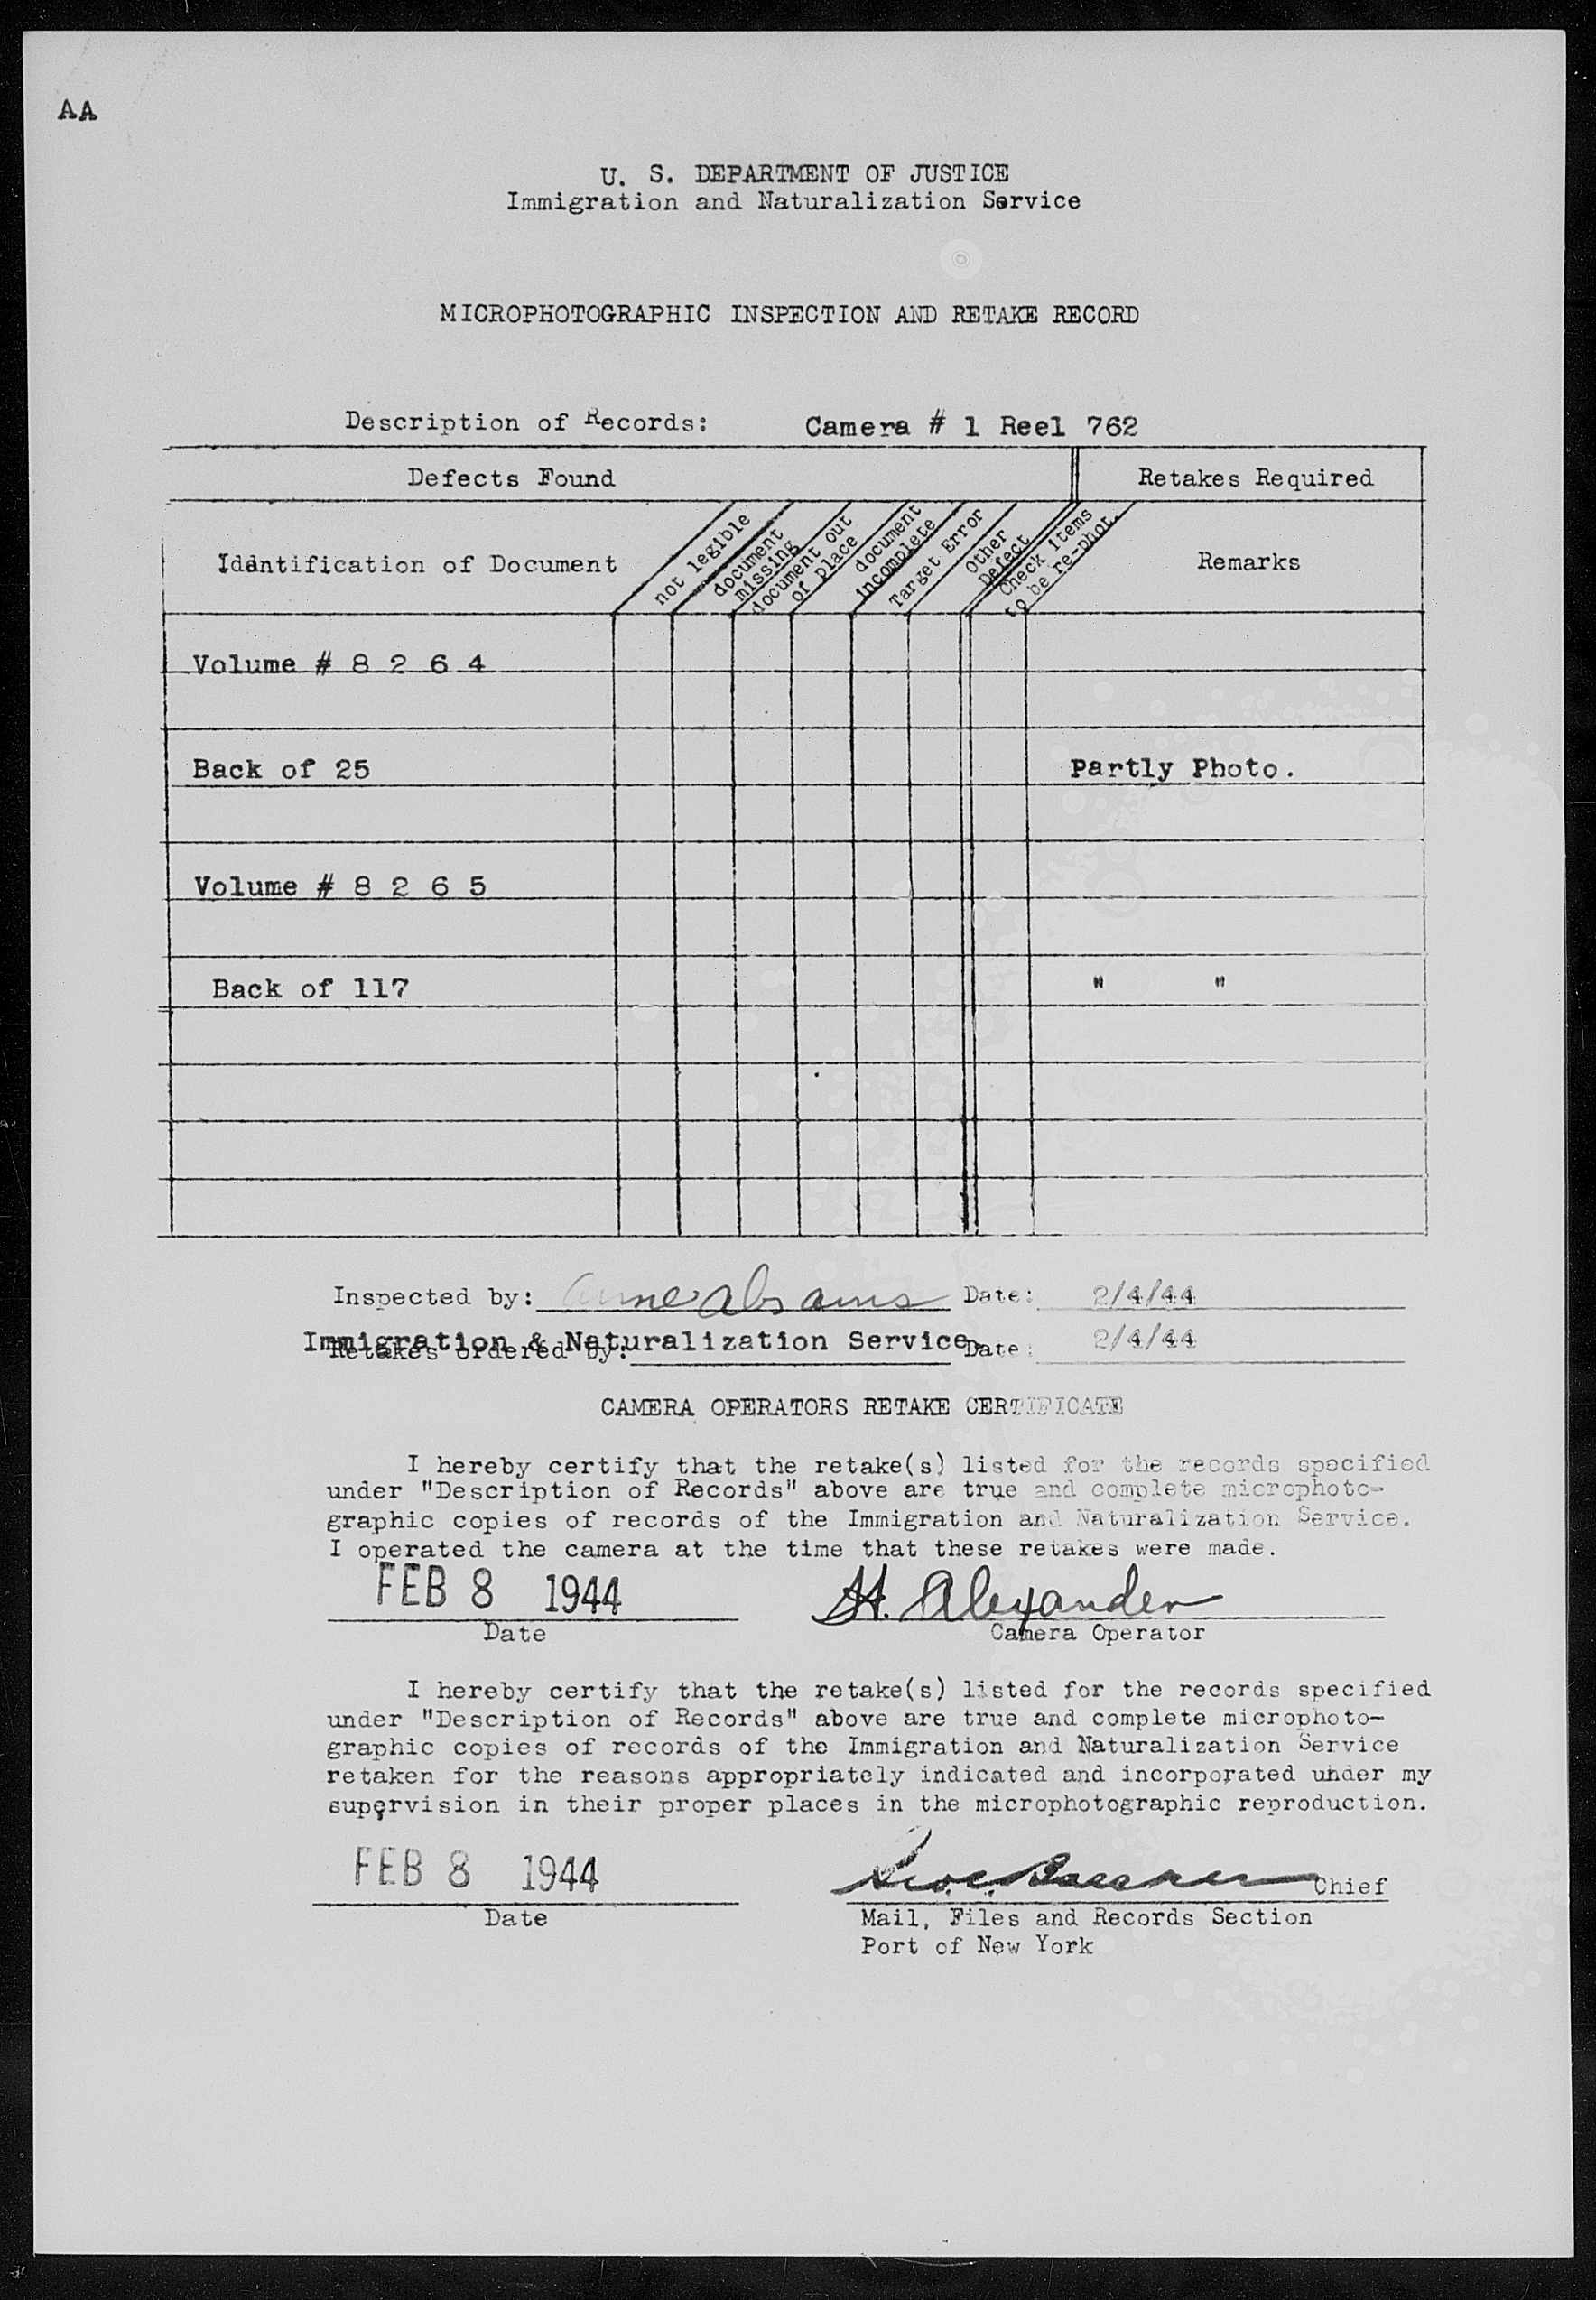 AA
U. S. DEPARTMENT OF JUSTICE
Immigration and Naturalization Service
MICROPHOTOGRAPHIC INSPECTION AND RETAKE RECORD
Description of Records: Camera # 1 Reel 762
Defects Found Retakes Required
Identification of Document
not legible
document
missing
document out
of place
document
incomplete
Target Error
Other
Defect
Check items
to be re-phot.
Remarks
Volume # 8 2 6 4
Back of 25 Partly Photo.
Volume # 8 2 6 5
Back of 117 " "
Inspected by: Anne Abrams Date: 2/4/44
Immigration & Naturalization Service
Retakes ordered by: Date: 2/4/44
CAMERA OPERATORS RETAKE CERTIFICATE
I hereby certify that the retake(s) listed for the records specified
under "Description of Records" above are true and complete microphoto-
graphic copies of records of the Immigration and Naturalization Service.
I operated the camera at the time that these retakes were made.
FEB 8 1944 H. Alexander
Date Camera Operator
I hereby certify that the retake(s) listed for the records specified
under "Description of Records" above are true and complete microphoto-
graphic copies of records of the Immigration and Naturalization Service
retaken for the reasons appropriately indicated and incorporated under my
supervision in their proper places in the microphotographic reproduction.
FEB 8 1944 Chief
Date Mail, Files and Records Section
Port of New York